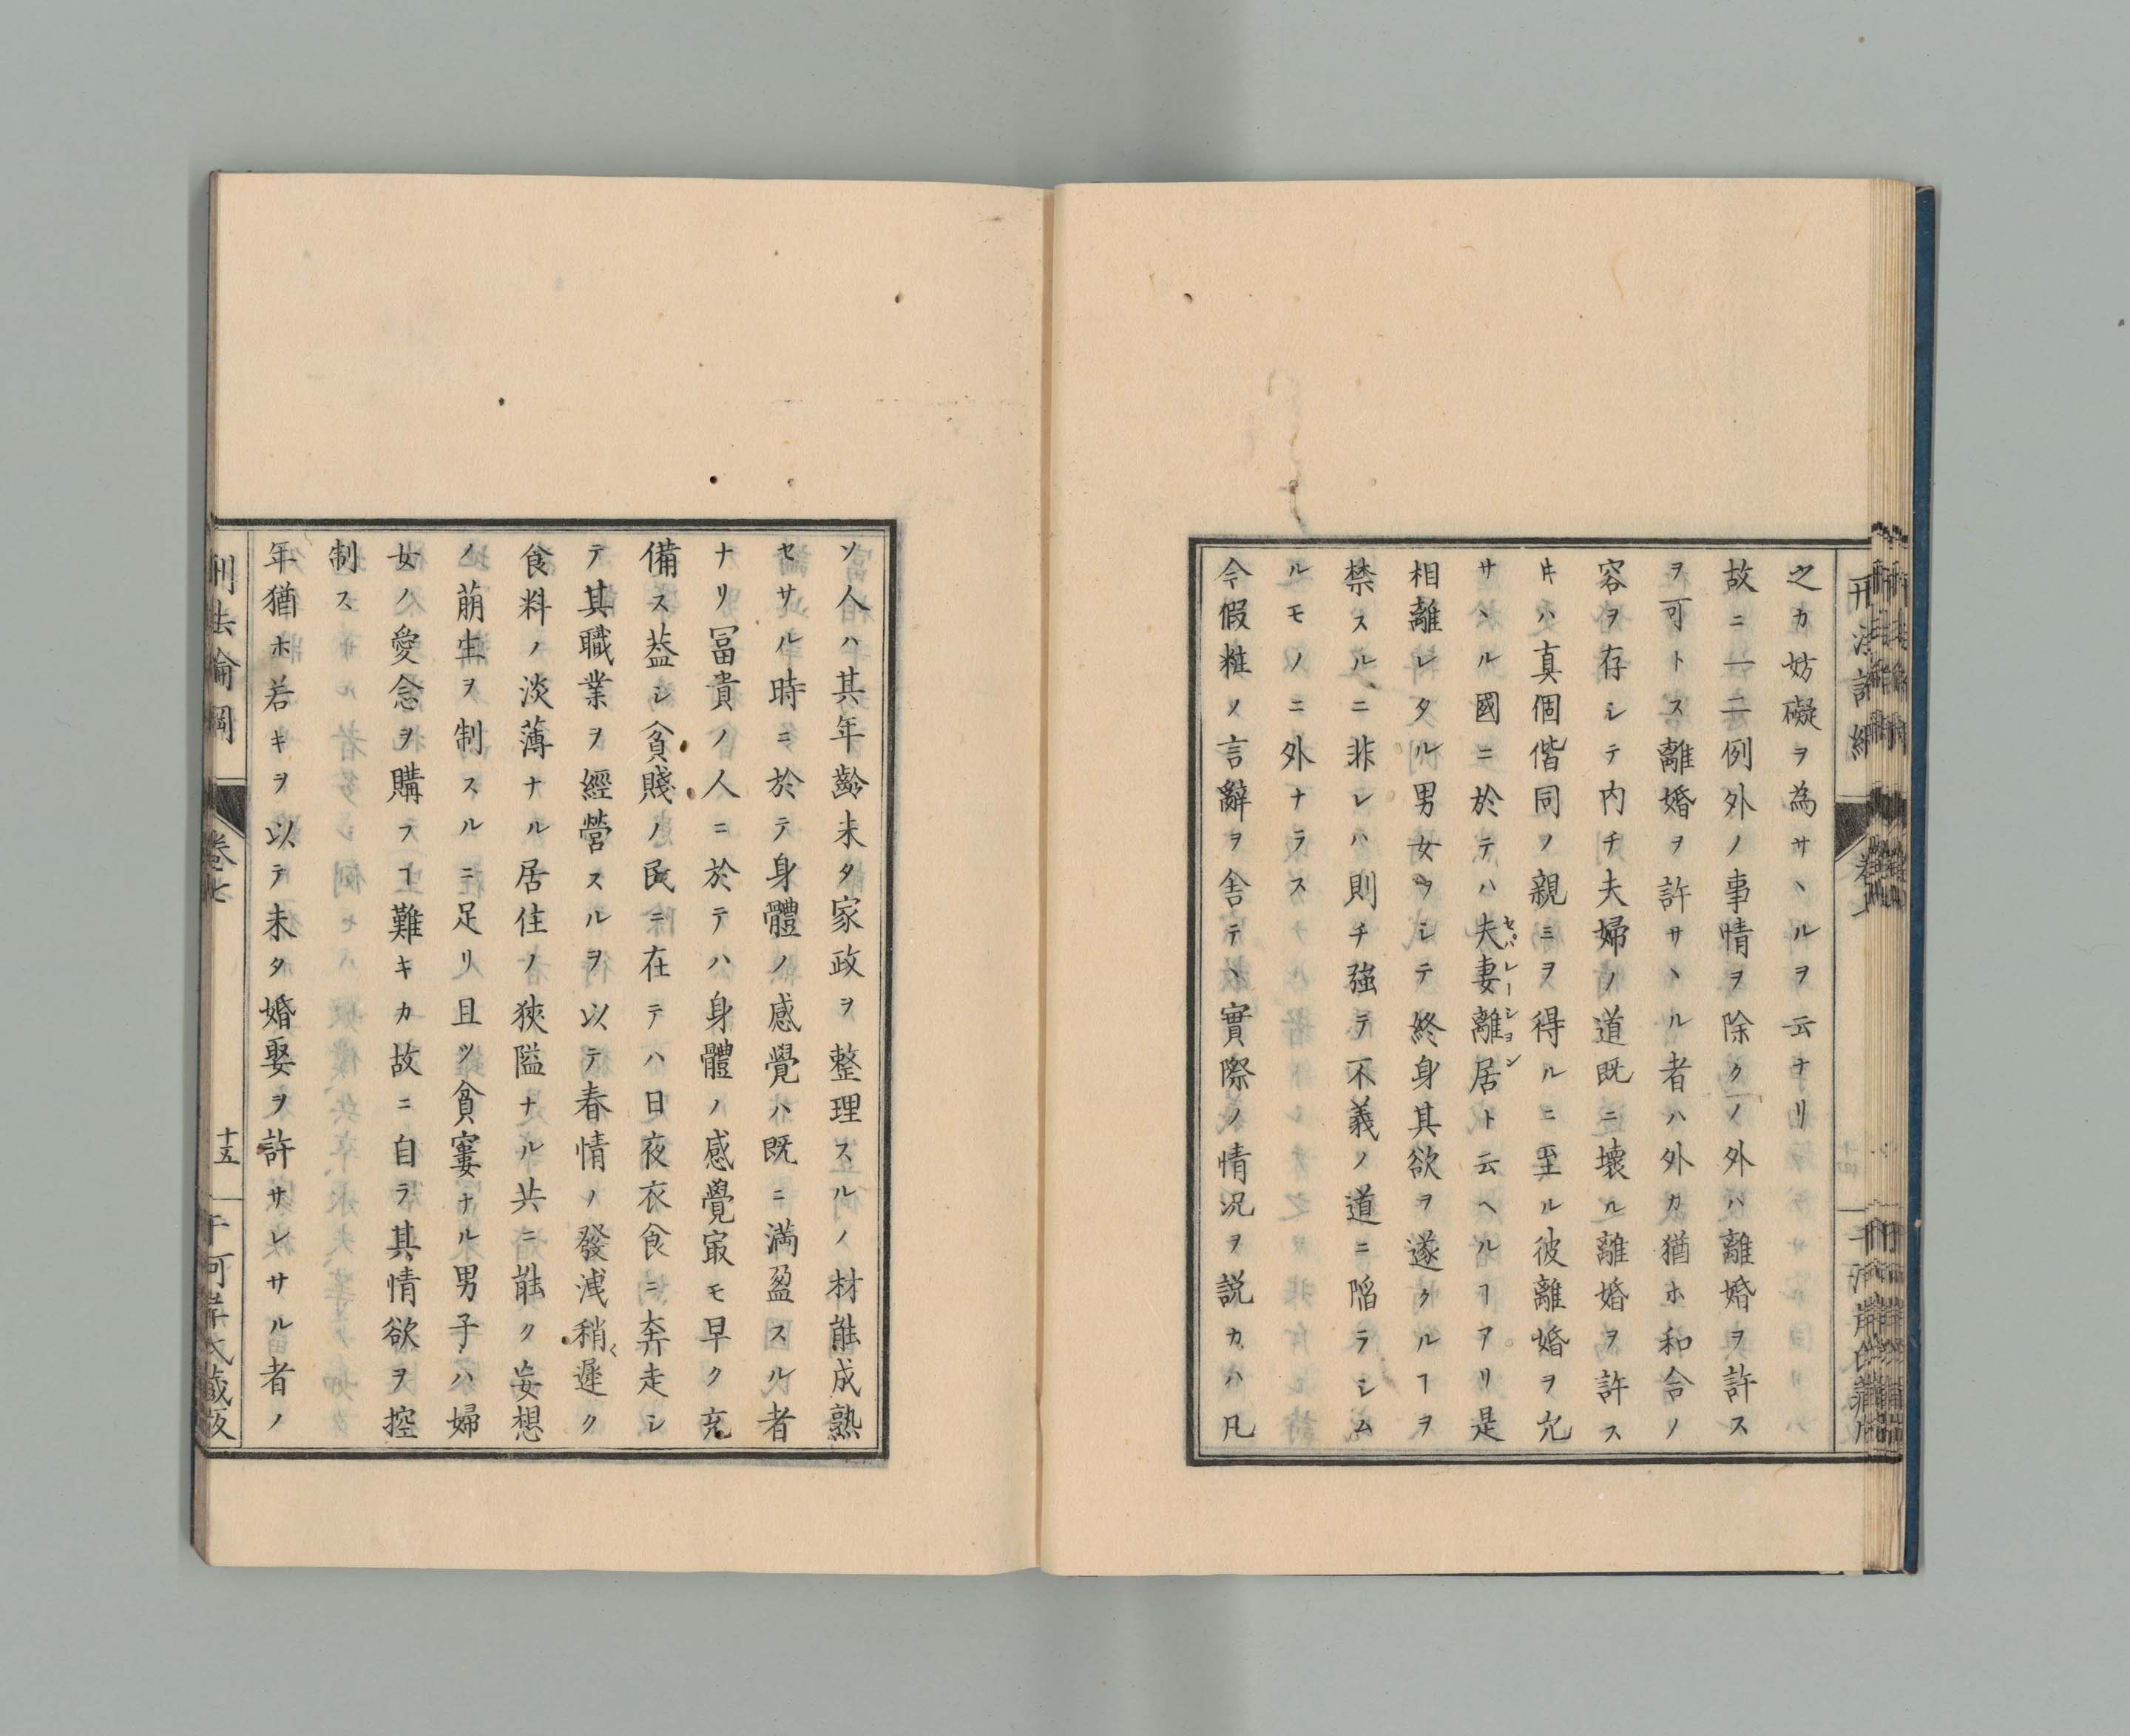 之カ妨礙ヲ為サヽルヲ云ナリ
故ニ一二例外ノ事情ヲ除クノ外ハ離婚ヲ許ス
ヲ可トス離婚ヲ許サヽル者ハ外カ猶ホ和合ノ
容ヲ存シテ内チ夫婦ノ道既ニ壊ル離婚ヲ許ス
𪜈ハ真個偕同ノ親ミヲ得ルニ至ル彼離婚ヲ允
サヽル國ニ於テハ夫妻離居ト云ヘルヿアリ是
セパレーション
相離レタル男女ヲシテ終身其欲ヲ遂クルヿヲ
禁スルニ非レハ則チ強テ不義ノ道ニ陷ラシム
ルモノニ外ナラス
今假粧ノ言辭ヲ舎テヽ實際ノ情況ヲ説カハ凡
ソ人ハ其年齡未タ家政ヲ整理スルノ材能成熟
セサル時ニ於テ身體ノ感覺ハ既ニ満盈スル者
ナリ冨貴ノ人ニ於テハ身體ノ感覺㝡モ早ク充
備ス葢シ貧賤ノ民ニ在テハ日夜衣食ニ奔走シ
テ其職業ヲ經營スルヲ以テ春情ノ發洩稍く遲ク
食料ノ淡薄ナル居住ノ狹隘ナル共ニ能ク妄想
ノ萠生ヲ制スルニ足リ且ツ貧窶ナル男子ハ婦
女ノ愛念ヲ購フヿ難キカ故ニ自ラ其情欲ヲ控
制ス
年猶ホ若キヲ以テ未タ婚娶ヲ許サレサル者ノ
刑法論綱
卷七
十五
何禮氏藏版